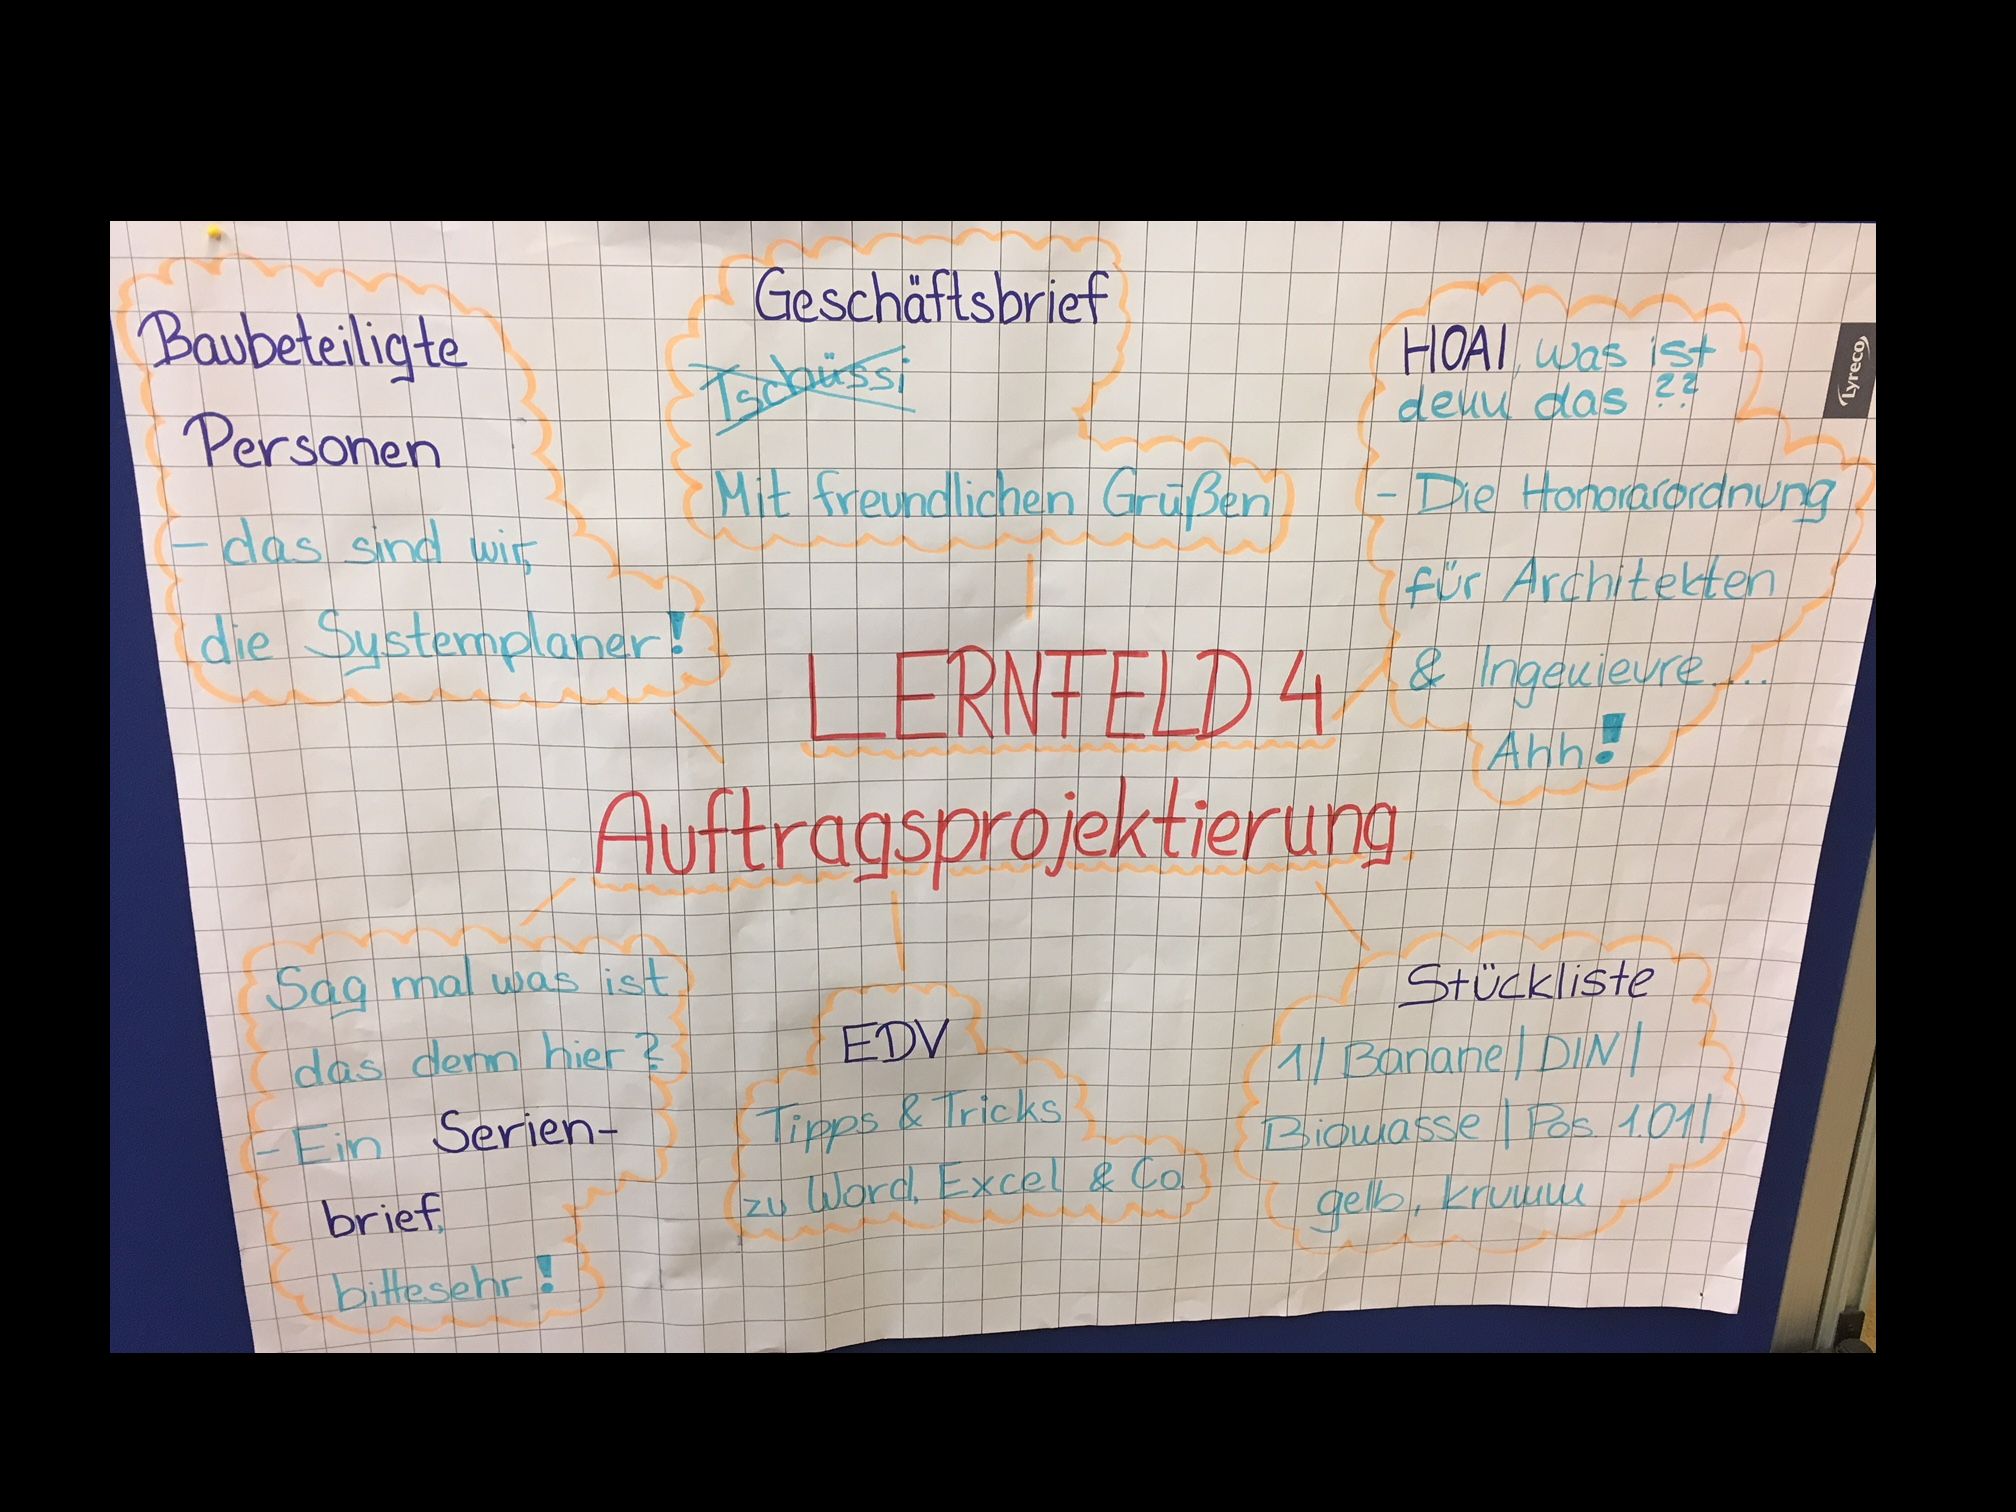 Baubeteiligte
Personen
- das sind wir,
die Systemplaner!
Geschäftsbrief
Tschüssi
Mit freundlichen Grüßen
HOAI, was ist
denn das ??
- Die Honorarordnung
für Architekten
& Ingenieure....
Ahh!
Lyreco
LERNFELD 4
Auftragsprojektierung
Sag mal was ist
das denn hier?
- Ein Serien-
brief,
bittesehr!
EDV
Tipps & Tricks
zu Word, Excel & Co
Stückliste
1/ Banane/ DIN/
Biomasse / Pos. 1.01/
gelb, krumm